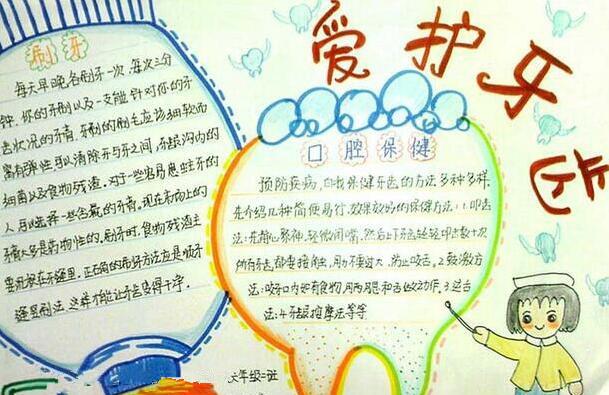 爱护牙齿
刷牙
每天早晚各刷牙一次,每次三分
钟,你的牙刷以及一支能针对你的牙
齿状况的牙膏,牙刷的刷毛应该细软而
富有弹性可以清除牙与牙之间、牙龈沟内的
细菌以及食物残渣。对于一些容易患蛀牙的
人可以选择一些含氟的牙膏,现在市场上的
牙膏大多是药物性的。刷牙时,食物残渣主
要嵌在牙缝里,正确的刷牙方法应是顺牙
缝里刷法,这样才能让牙齿变得干净。
口腔保健
预防疾病,自我保健牙齿的方法多种多样,
先介绍几种简便易行、效果较好的保健方法:1.叩齿
法:先静心聚神,轻微闭嘴,然后上下牙齿轻轻叩击数十次
所有牙齿都要接触,用力不要过大,防止咬舌。2.鼓漱方
法:咬牙口内如有食物,用两腮和舌做动作。3.运舌
法:4.牙龈按摩法等等
六年级二班